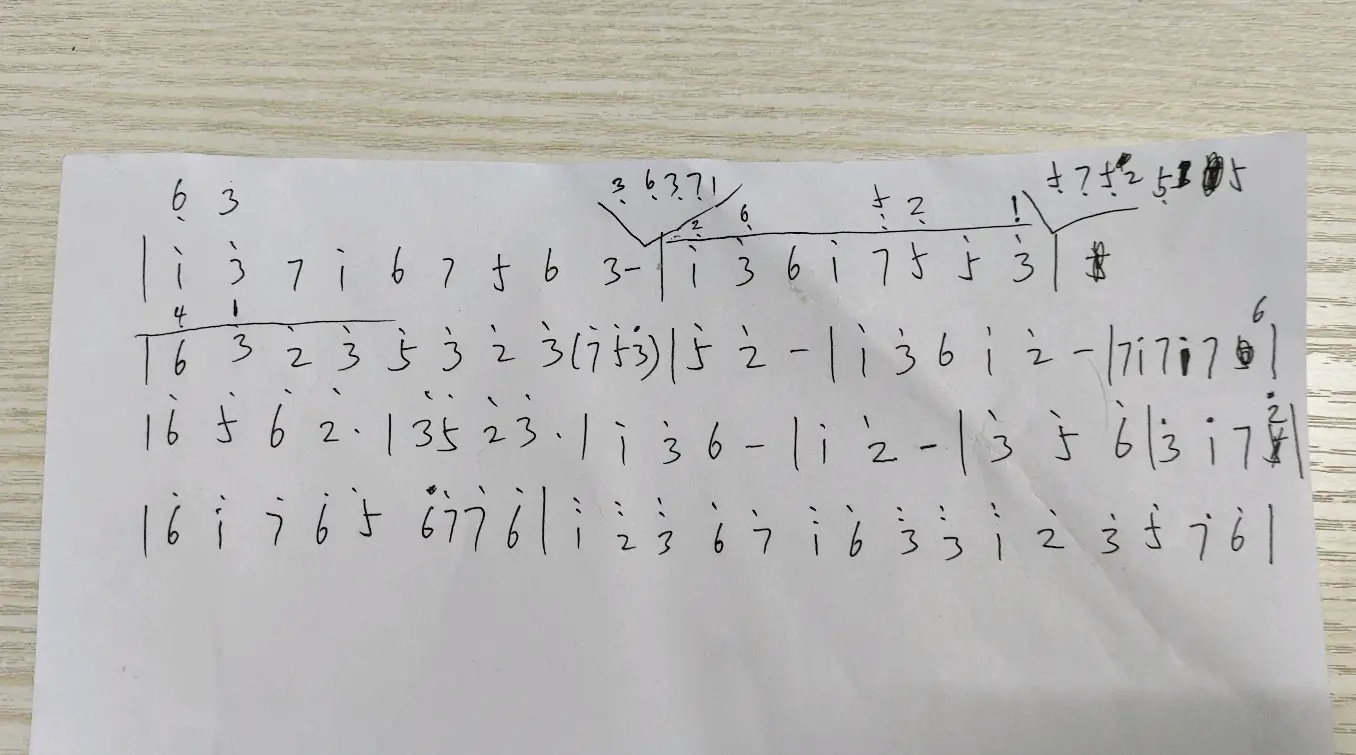 6̣ 3
3̣ 6̣ 3̣ 7̣ 1
5̣ 7̣ 5̣ 2 5̣ 5
2̣ 6̣ 5̣ 2̣ 1
| i 3̇ 7 i 6 7 5 6 3- | i 3̇ 6 i 7 5̇ 5̇ 3̇ |
4 1
| 6̇ 3̇ 2̇ 3̇ 5̇ 3̇ 2̇ 3̇ (7̇ 5̇ 3̇) | 5̇ 2̇ - | i 3̇ 6 i 2̇ - | 7 i 7 i 7 6 |
| 6̇ 5̇ 6̇ 2̇ · | 3̇ 5̇ 2̇ 3̇ · | i 3̇ 6 - | i 2̇ - | 3̇ 5 6̇ | 3̇ i 7 2̇ |
| 6̇ i 7̇ 6̇ 5̇ 6̇ 7̇ 7̇ 6̇ | i 2̇ 3̇ 6̇ 7̇ i 6̇ 3̇ 3̇ i 2̇ 3̇ 5̇ 7̇ 6̇ |